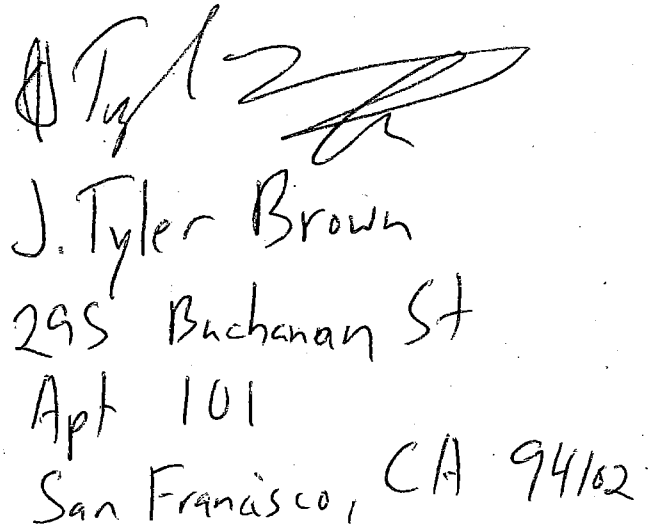 J. Tyler Brown
295 Buchanan St
Apt 101
San Francisco, CA 94102